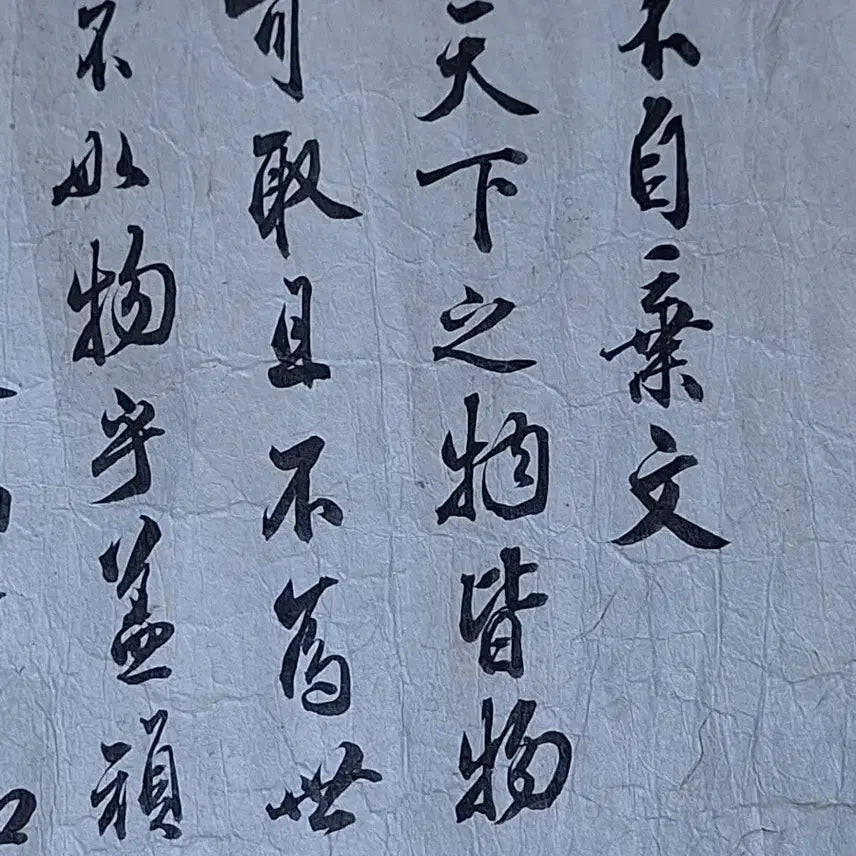 不自棄文
天下之物皆物
可取且不為世
不如物乎蓋頑